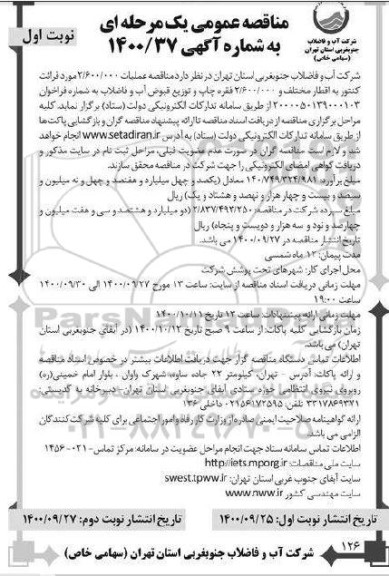 مناقصه عمومی یک مرحله ای
به شماره آگهی ۱۴۰۰/۳۷
نوبت اول
شرکت آب و فاضلاب
جنوبغربی استان تهران
(سهامی خاص)
شرکت آب و فاضلاب جنوبغربی استان تهران در نظر دارد مناقصه عملیات ۲/۶۰۰/۰۰۰ مورد قرائت
کنتور به اقطار مختلف و ۲/۶۰۰/۰۰۰ فقره چاپ و توزیع قبوض آب و فاضلاب به شماره فراخوان
۲۰۰۰۰۵۰۱۳۹۰۰۰۱۰۳ از طریق سامانه تدارکات الکترونیکی دولت (ستاد) برگزار نماید. کلیه
مراحل برگزاری مناقصه از دریافت اسناد مناقصه تا ارائه پیشنهاد مناقصه گران و بازگشایی پاکت ها
از طریق سامانه تدارکات الکترونیکی دولت (ستاد) به آدرس www.setadiran.ir انجام خواهد
شد و لازم است مناقصه گران در صورت عدم عضویت قبلی، مراحل ثبت نام در سایت مذکور و
دریافت گواهی امضای الکترونیکی را جهت شرکت در مناقصه محقق سازند.
مبلغ برآورد: ۱۴۰/۷۴۹/۳۲۴/۹۸۱ معادل (یکصد و چهل میلیارد و هفتصد و چهل و نه میلیون و
سیصد و بیست و چهار هزار و نهصد و هشتاد و یک) ریال
مبلغ سپرده شرکت در مناقصه: ۲/۸۳۷/۴۹۳/۲۵۰ (دو میلیارد و هشتصد و سی و هفت میلیون و
چهارصد و نود و سه هزار و دویست و پنجاه) ریال
تاریخ انتشار مناقصه در ۱۴۰۰/۰۹/۲۷ می باشد.
مدت پیمان: ۱۲ ماه شمسی
محل اجرای کار: شهرهای تحت پوشش شرکت
مهلت زمانی دریافت اسناد مناقصه از سایت: ساعت ۱۳ مورخ ۱۴۰۰/۰۹/۲۷ الی ۱۴۰۰/۰۹/۳۰
ساعت ۱۹:۰۰
مهلت زمانی ارائه پیشنهادات: ساعت ۱۳ تاریخ ۱۴۰۰/۱۰/۱۱
زمان بازگشایی کلیه پاکات: از ساعت ۹ صبح تاریخ ۱۴۰۰/۱۰/۱۲ (در آبفای جنوبغربی استان
تهران) می باشد.
اطلاعات تماس دستگاه مناقصه گزار جهت دریافت اطلاعات بیشتر در خصوص اسناد مناقصه
و ارائه پاکات: آدرس - تهران، کیلومتر ۲۲ جاده ساوه، شهرک واوان، بلوار امام خمینی(ره)
روبروی نیروی انتظامی، حوزه ستادی آبفای جنوبغربی استان تهران- دبیرخانه به کدپستی:
۳۳۱۷۸۶۹۳۷۱ تلفن: ۰۲۱۵۶۱۷۲۵۹۵ داخلی ۱۳۶
ارائه گواهینامه صلاحیت ایمنی صادره از وزارت کار رفاه و امور اجتماعی برای کلیه شرکت کنندگان
الزامی می باشد.
اطلاعات تماس سامانه ستاد جهت انجام مراحل عضویت در سامانه: مرکز تماس- ۰۲۱-۱۴۵۶
سایت ملی مناقصات: http://iets.mporg.ir
سایت آبفای جنوب غربی استان تهران: swest.tpww.ir
سایت مهندسی کشور www.nww.ir
تاریخ انتشار نوبت اول: ۱۴۰۰/۰۹/۲۵
تاریخ انتشار نوبت دوم: ۱۴۰۰/۰۹/۲۷
۱۲۶
شرکت آب و فاضلاب جنوبغربی استان تهران (سهامی خاص)